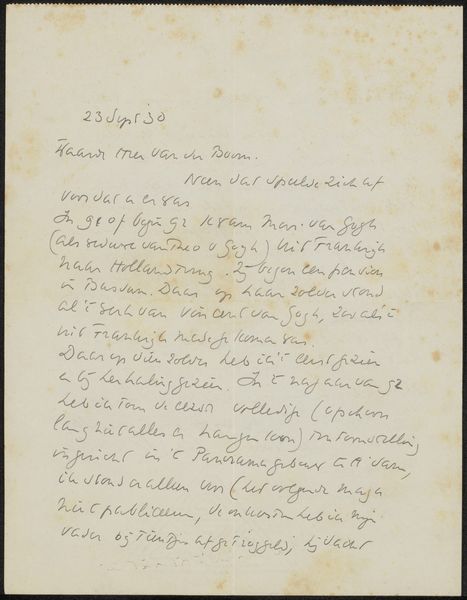 23 Sept '30
Waarde Heer van den Boom.
Neen dat speelde zich af
voordat er was
In 91 of begin 92 kwam Mevr. van Gogh
(als weduwe van Theo v Gogh) uit Frankrijk
naar Holland terug. Zij begon een pension
in Bussum. Daar op haar zolder stond
al 't werk van Vincent van Gogh, zoals 't
uit Frankrijk was.
Daar op dien zolder heb ik 't eerst gezien
en bij herhaling gezien. In 't najaar van 92
heb ik toen de eerste volledige (ofschoon
lang niet alles er hangen kon) tentoonstelling
ingericht in 't Panoramagebouw te A'dam,
ik stond er alleen voor (het volgende
niet publiceeren, de onkosten heb ik mijn
vader bij tientjes afgetroggeld, hij dacht